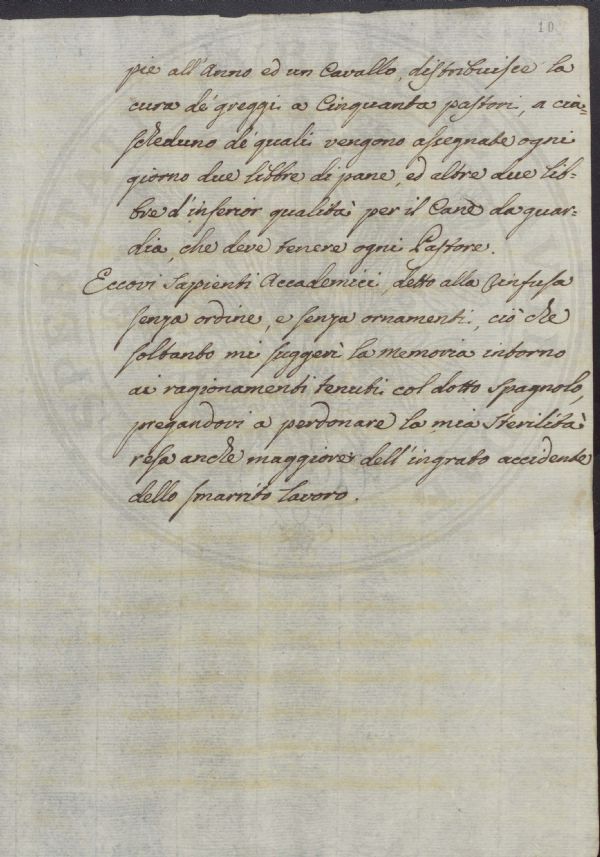 10
pie all'Anno ed un Cavallo, distribuisce la
cura de' greggi a Cinquanta pastori, a cia=
scheduno de' quali vengono assegnate ogni
giorno due libbre di pane, ed altre due lib=
bre d'inferior qualità per il Cane da guar=
dia, che deve tenere ogni Pastore.
Eccovi Sapienti Accademici, detto alla rinfusa
senza ordine, e senza ornamenti, ciò che
soltanto mi suggerì la memoria intorno
ai ragionamenti tenuti col dotto Spagnolo,
pregandovi a perdonare la mia Sterilità
resa anche maggiore dell'ingrato accidente
dello smarrito lavoro.